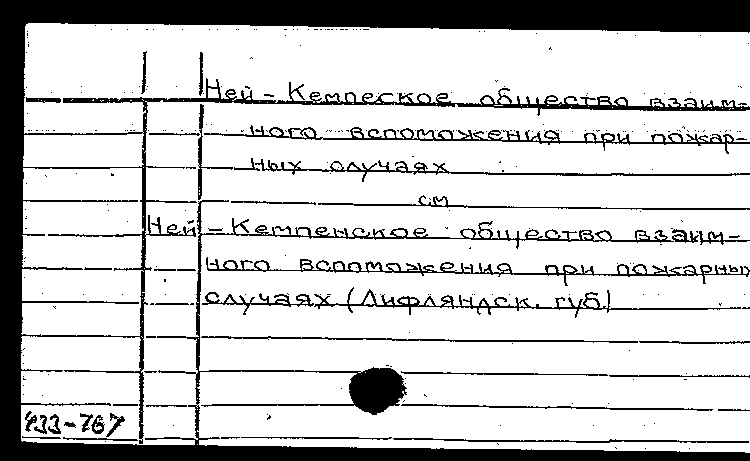 Ней - Кемпеское общество взаим-
ного вспоможения при пожар-
ных случаях
см
Ней - Кемпенское общество взаим-
ного вспоможения при пожарных
случаях (Лифляндск. губ.)
433-767